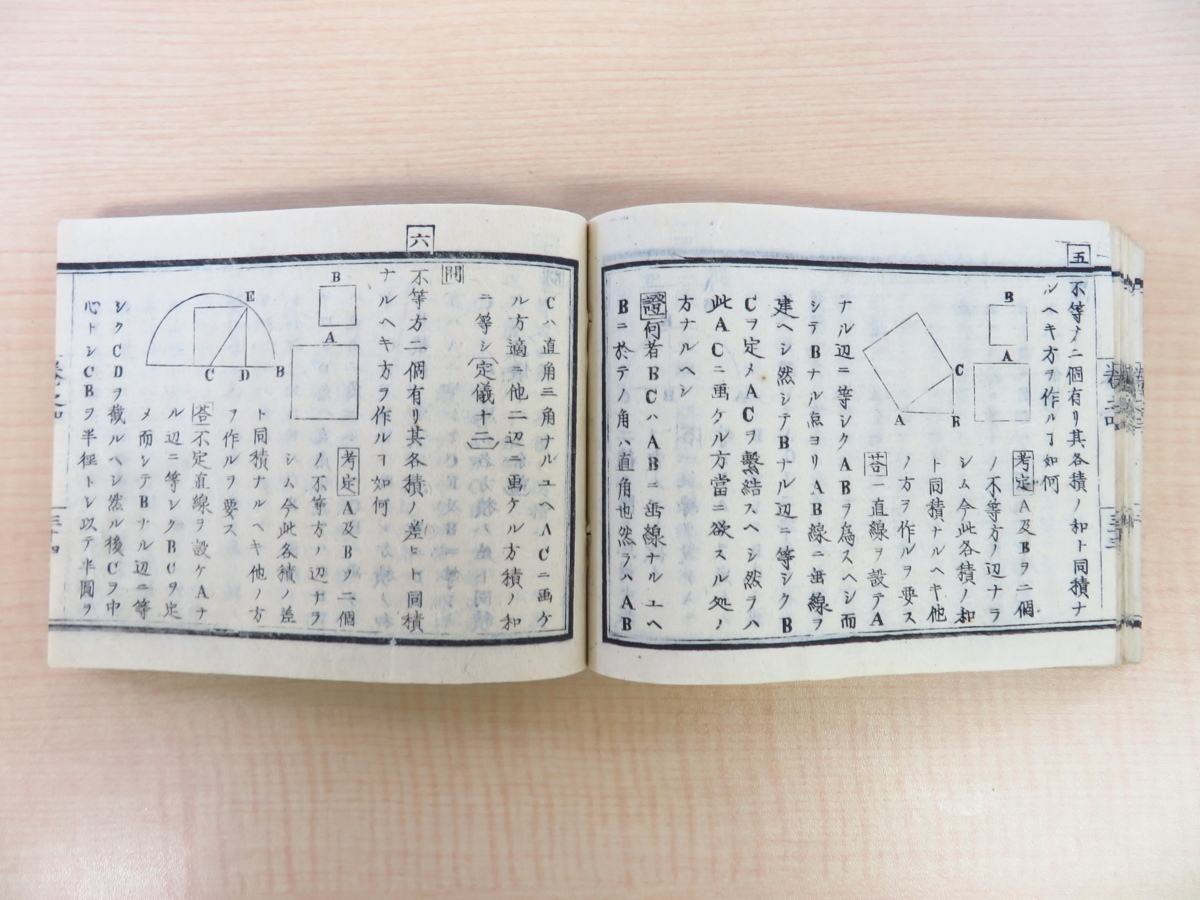 五
不等ノ二個有リ其各積ノ和ト同積ナ
ルヘキ方ヲ作ルヿ如何
B
A
C
A
B
考定 A及Bヲ二個
ノ不等方ノ辺ナラ
シム今此各積ノ和
ト同積ナルヘキ他
ノ方ヲ作ルヲ要ス
答 一直線ヲ設テA
ナル辺ニ等シクABヲ為スヘシ而
シテBナル点ヨリAB線ニ垂線ヲ
建ヘシ然シテBナル辺ニ等シクB
Cヲ定メACヲ繋結スヘシ然ラハ
此ACニ画ケル方當ニ欲スル処ノ
方ナルヘシ
證 何者BCハABニ垂線ナルユヘ
Bニ於テノ角ハ直角也然ラハAB
Cハ直角三角ナルユヘACニ画ケ
ル方適ニ他二辺ニ画ケル方積ノ和
ニ等シ(定儀十二)
六
問
不等方二個有リ其各積ノ差ヒト同積
ナルヘキ方ヲ作ルヿ如何
B
A
E
C D B
考定 A及Bヲ二個
ノ不等方ノ辺ナラ
シム今此各積ノ差
ト同積ナルヘキ他ノ方
ヲ作ルヲ要ス
答 不定直線ヲ設ケAナ
ル辺ニ等シクBCヲ定
メ而シテBナル辺ニ等
シクCDヲ截ルヘシ然ル後Cヲ中
心トシCBヲ半徑トシ以テ半圓ヲ